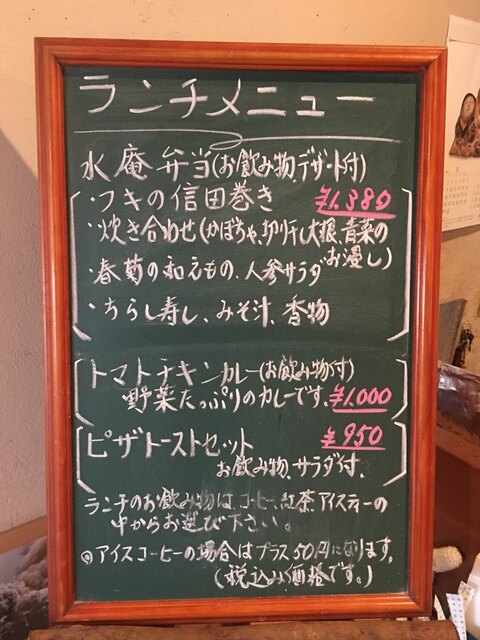 ランチメニュー
水庵弁当(お飲み物、デザート付)
・フキの信田巻き ¥1.380
・炊き合わせ(かぼちゃ、切り干し大根、青菜の
お浸し)
・春菊の和えもの、人参サラダ
・ちらし寿し、みそ汁、香物
トマトチキンカレー(お飲み物付)
野菜たっぷりのカレーです。¥1.000
ピザトーストセット ¥950
お飲み物、サラダ付、
ランチのお飲み物は、コーヒー、紅茶、アイスティーの
中からお選び下さい。
◎アイスコーヒーの場合はプラス50円になります。
(税込み価格です。)